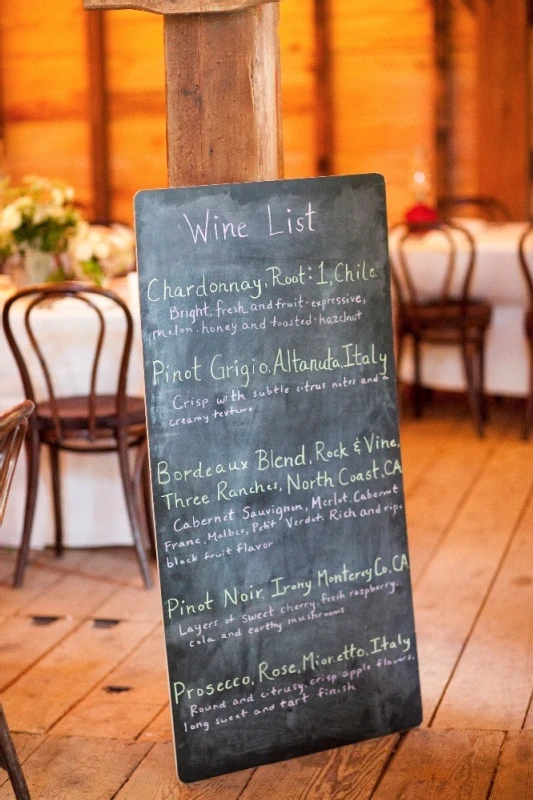 Wine List
Chardonnay, Root: 1, Chile
Bright, fresh and fruit-expressive,
melon, honey and toasted-hazelnut
Pinot Grigio, Altanuta, Italy
Crisp with subtle citrus notes and a
creamy texture
Bordeaux Blend, Rock & Vine,
Three Ranches, North Coast, CA
Cabernet Sauvignon, Merlot, Cabernet
Franc, Malbec, Petit Verdot. Rich and ripe
black fruit flavor
Pinot Noir, Irony Monterey Co, CA
Layers of sweet cherry, fresh raspberry,
cola and earthy mushrooms
Prosecco, Rose, Mionetto, Italy
Round and citrusy, crisp apple flavors,
long sweet and tart finish